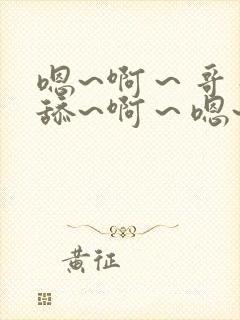 嗯~啊~哥
舔~啊~嗯~
黄征